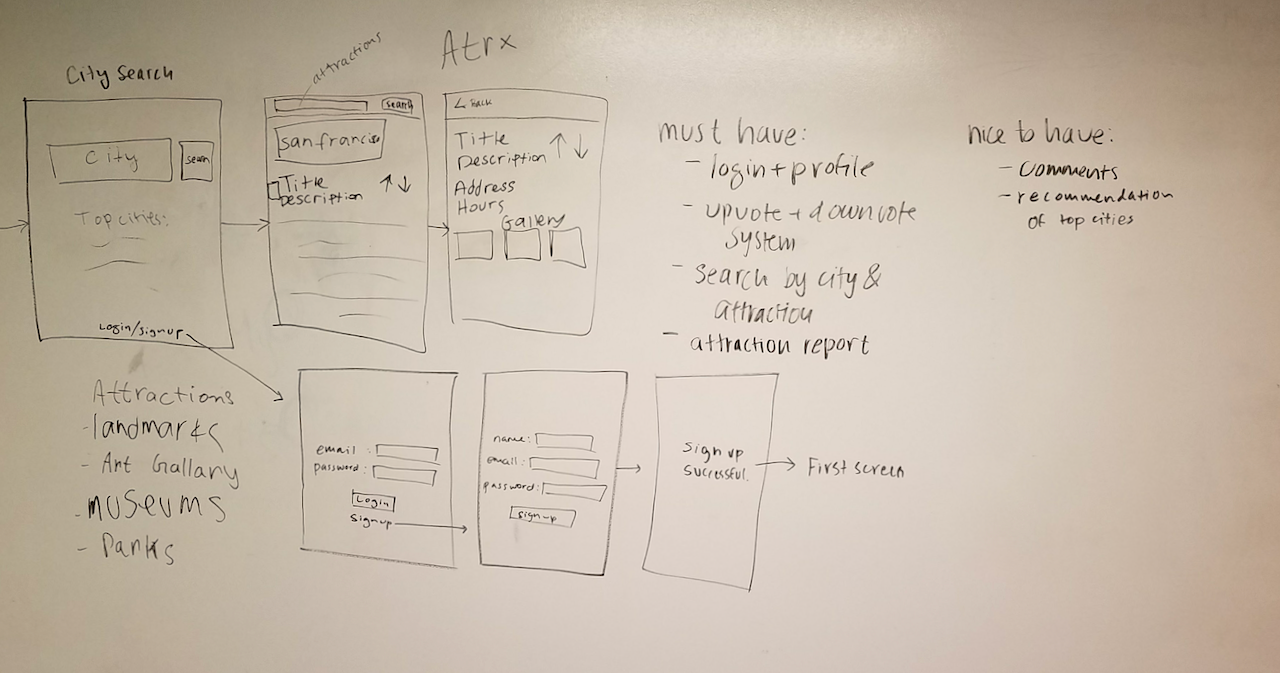 Atrx
City Search
City
Search
Top cities:
Login/signup
attractions
search
sanfrancisco
Title
Description
Back
Title
Description
Address
Hours
Gallery
must have:
- login + profile
- upvote + downvote
system
- search by city &
attraction
- attraction report
nice to have:
- comments
- recommendation
of top cities
Attractions
- landmarks
- Art Gallary
- museums
- Parks
email :
password :
Login
signup
name:
email:
password:
signup
sign up
successful.
First screen